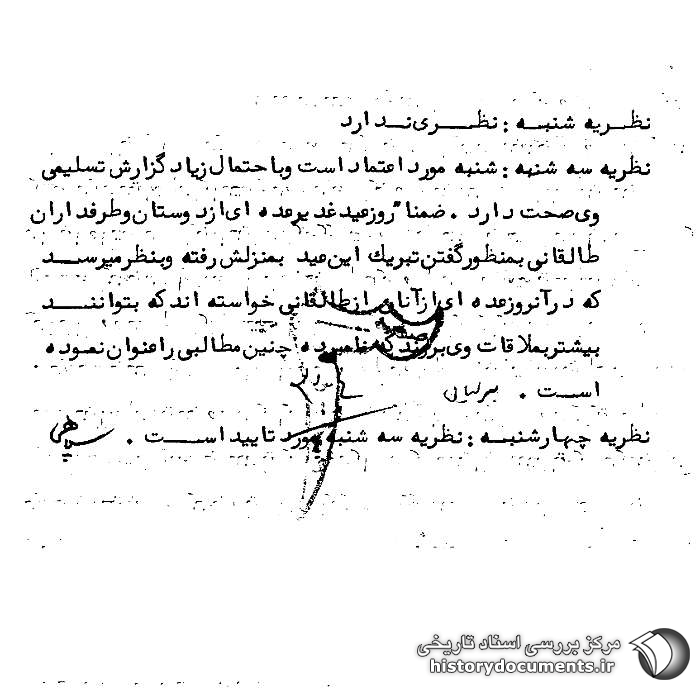 نظریه شنبه : نظری ندارد
نظریه سه شنبه : شنبه مورد اعتماد است و با احتمال زیاد گزارش تسلیمی
وی صحت دارد . ضمنا" روز عید غدیر عده ای از دوستان و طرفداران
طالقانی بمنظور گفتن تبریك این عید بمنزلش رفته و بنظر میرسد
که در آنروز عده ای از آنان از طالقانی خواسته اند که بتوانند
بیشتر بملاقات وی بروند که نامبرده چنین مطالبی را عنوان نموده
است .
نظریه چهارشنبه : نظریه سه شنبه مورد تایید است .
مرکز بررسی اسناد تاریخی
historydocuments.ir